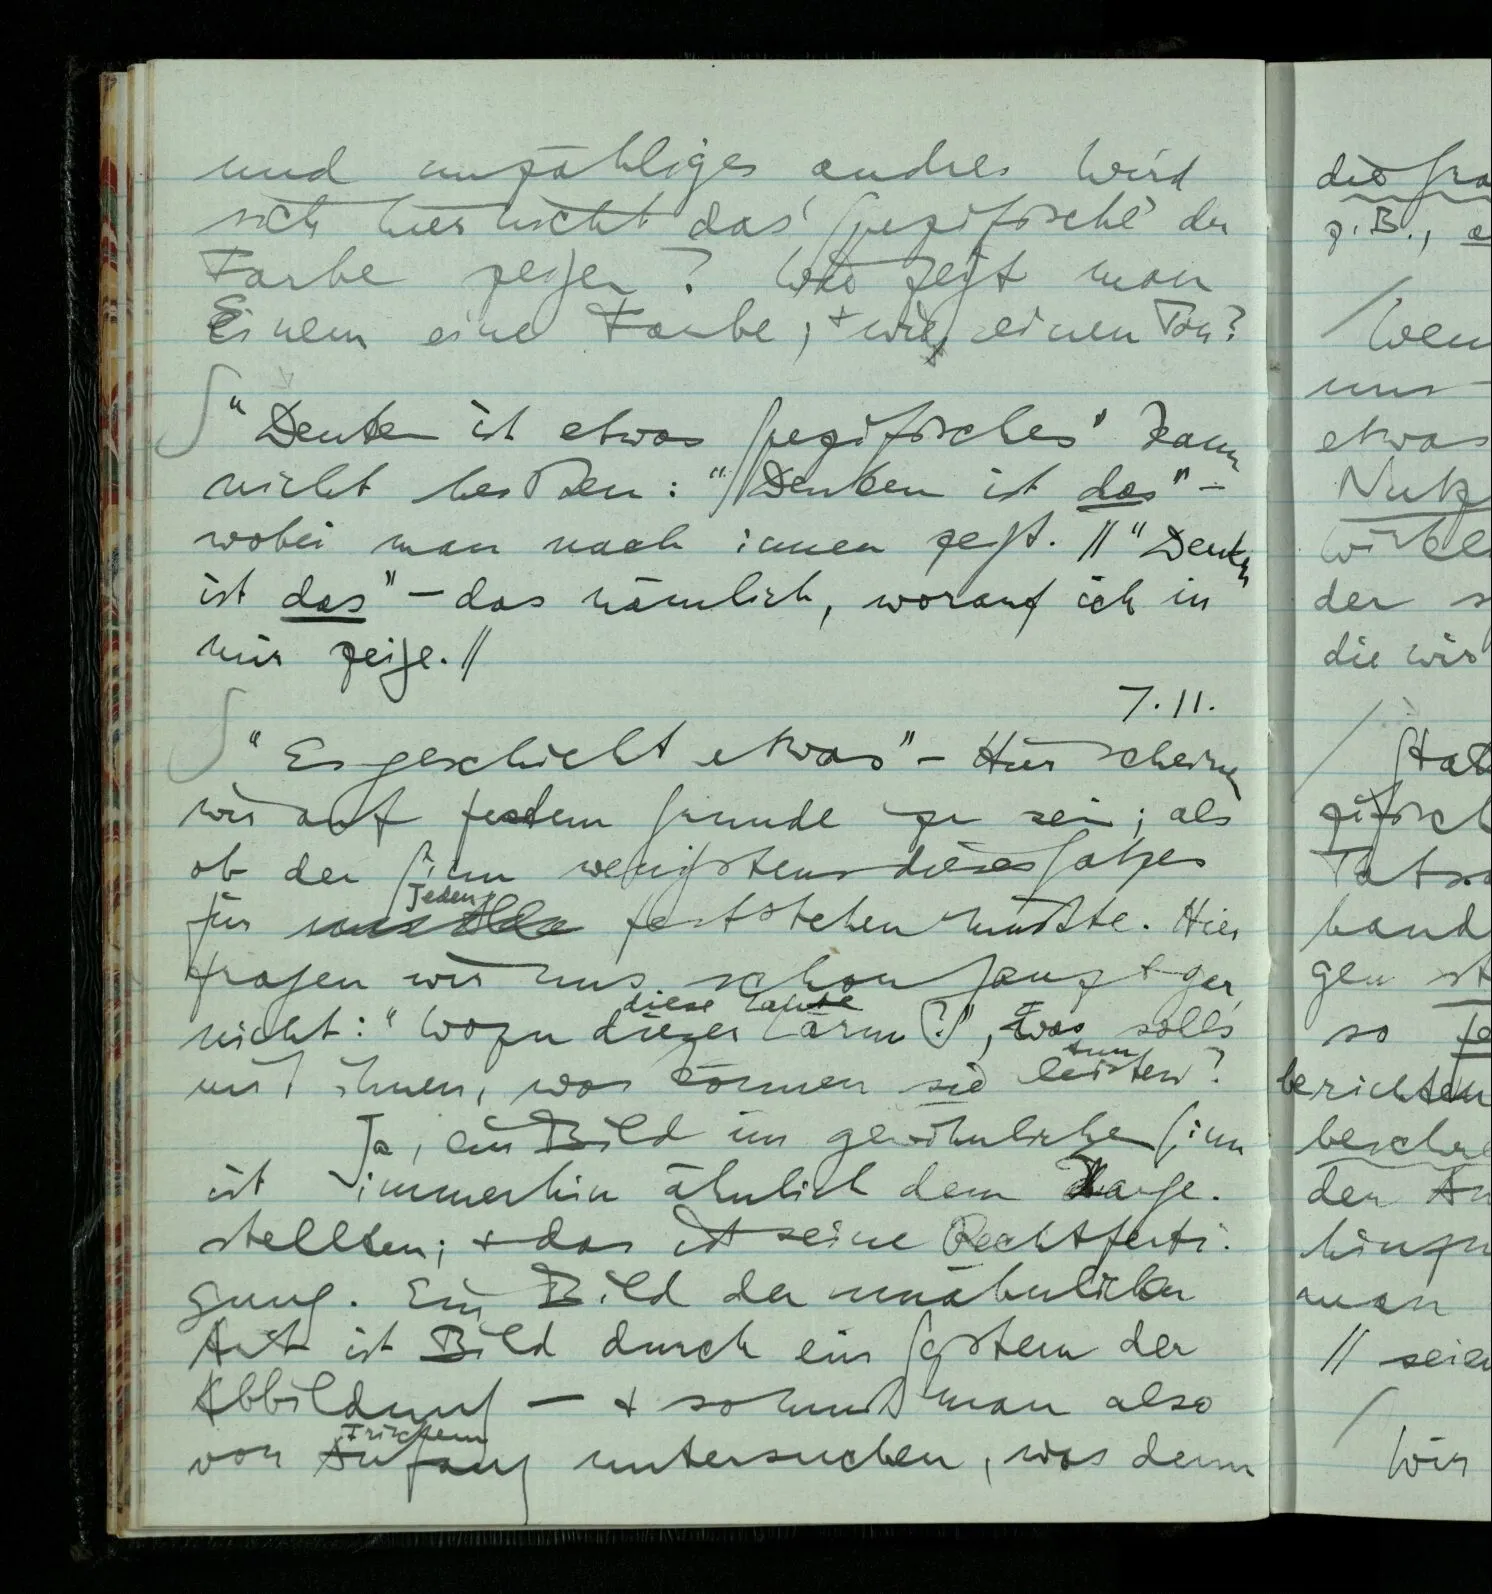 und unzähliges andres wird
sich hier nicht das 'Spezifische' der
Farbe zeigen? Wie zeigt man
Einem eine Farbe, + wie einen Ton?
"Denken ist etwas Spezifisches" kann
nicht heißen: "Denken ist das" –
wobei man nach innen zeigt. // "Denken
ist das" – das nämlich, worauf ich in
mir zeige. //
7.11.
"Es geschieht etwas" – Hier scheinen
wir auf festem Grunde zu sein; als
ob der Sinn wenigstens dieses Satzes
Jeden
für feststehen müßte. Hier
fragen wir uns schon ganz + gar
diese Laute
nicht: "Wozu dieser Lärm?", was soll's
tun
mit ihnen, was können sie leisten?
Ja, ein Bild im gewöhnlichen Sinn
ist immerhin ähnlich dem Darge-
stellten; + das ist seine Rechtferti-
gung. Ein Bild der unähnlichen
Art ist Bild durch ein System der
Abbildung – + so muß man also
Frischem
von Anfang untersuchen, was denn
z. B.,
etwas
der
die wir
so
berichten
den
man
// 
Wir